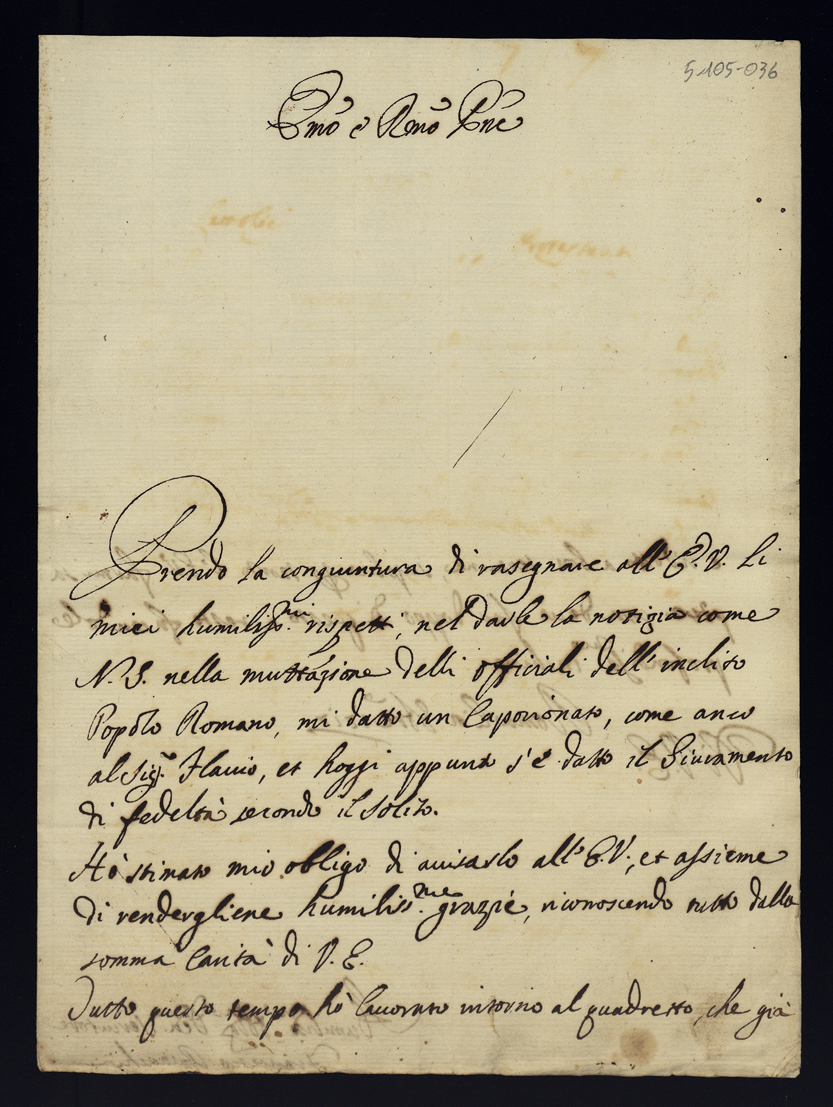 5-105-036
Em͂o e Rm͂o Pn͂e
Prendo la congiuntura di rasegnare all' E. V. li
miei humiliss.mi rispetti, nel darle la notizia come
N. S. nella muttazione delli officiali dell' inclito
Popolo Romano, mi datto un Caporionato, come anco
al Sig.r Flavio, et hoggi appunto s'è datto il Giuramento
di fedeltà secondo il solito.
Hò stimato mio obligo di avisarlo all' E. V., et assieme
di rendergliene humiliss.me grazie, riconoscendo tutto dalla
somma Carità di V. E.
Tutto questo tempo hò lavorato intorno al quadretto, che già